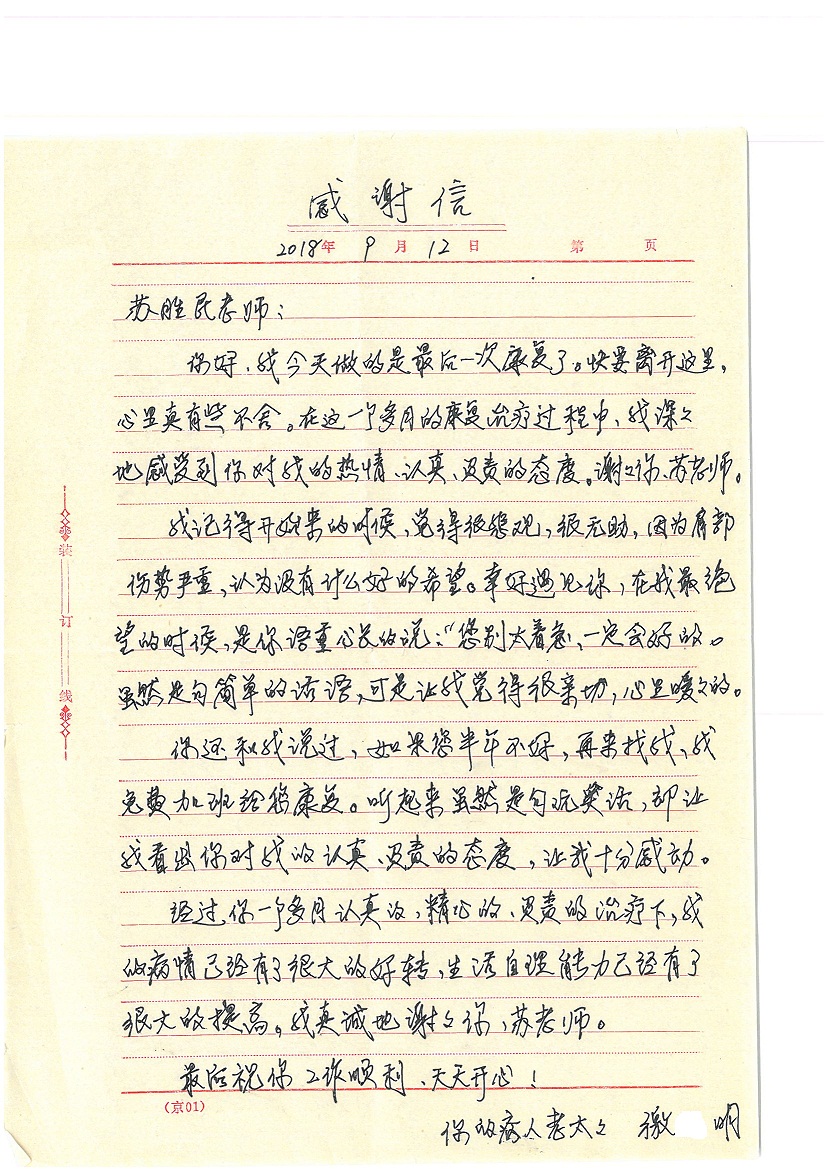 感谢信
2018年 9月 12日 第 页
苏胜民老师：
你好、我今天做的是最后一次康复了。快要离开这里，
心里真有些不舍。在这一个多月的康复治疗过程中、我深々
地感受到你对我的热情、认真、负责的态度。谢々你、苏老师。
我记得开始来的时候，觉得很悲观，很无助，因为肩部
伤势严重，认为没有什么好的希望。幸好遇见你，在我最绝
望的时候，是你语重心长的说：“您别太着急，一定会好的。
虽然是句简单的话语，可是让我觉得很亲切，心里暖々的。
你还和我说过，如果您半年不好，再来找我、我
免费加班给您康复。听起来虽然是句玩笑话，却让
我看出你对我的认真、负责的态度，让我十分感动。
经过你一个多月认真的，精心的、负责的治疗下，我
的病情已经有了很大的好转，生活自理能力已经有了
很大的提高。我真诚地谢々你，苏老师。
最后祝你工作顺利、天天开心！
你的病人老太々 明
装
订
线
(京01)